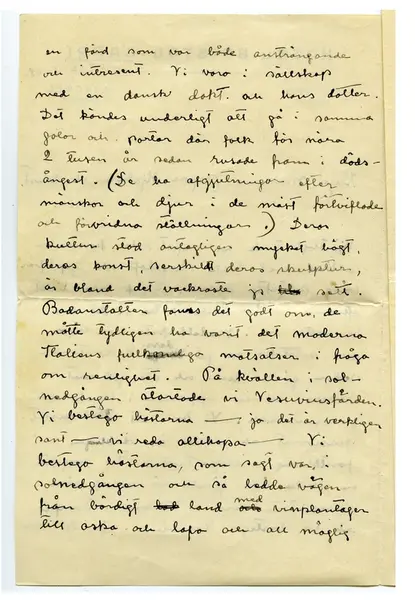 en färd som var både ansträngande
och intresent. Vi voro i sällskap
med en dansk dokt. och hans dotter.
Det kändes underligt att gå i samma
gator och portar där folk för nära
2 tusen år sedan rusade fram i döds-
ångest. (De ha afgjutningar efter
mänskor och djur i de mest förtviflade
och förvridna ställningar.) Deras
kultur stod antagligen mycket högt,
deras konst, serskildt deras skulptur,
är bland det vackraste jag sett.
Badanstalter fanns det godt om, de
måtte tydligen ha varit det moderna
Italiens motsatser i fråga
om renlighet. På kvällen i sol-
nedgången startade vi Vesuviusfärden.
Vi bestego hästarna — ja det är verkligen
sant — vi reda allihopa — Vi
bestego hästarna, som sagt var, i
solnedgången och så ledde vägen
från bördigt land med vinplantager
till aska och lava och all möjlig